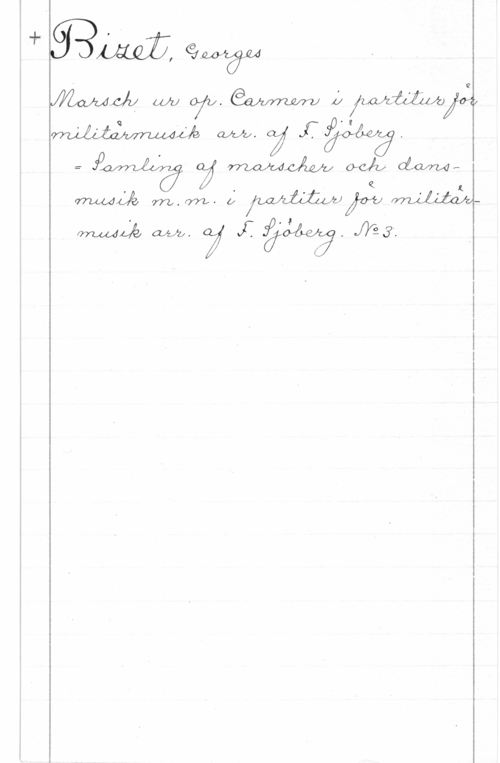 + Bizet, Georges
Marsch ur op. Carmen i partitur för
militärmusik arr. af F. Sjöberg.
= Samling af marscher och dans-
musik m.m. i partitur för militär-
musik arr. af F. Sjöberg. No 3.